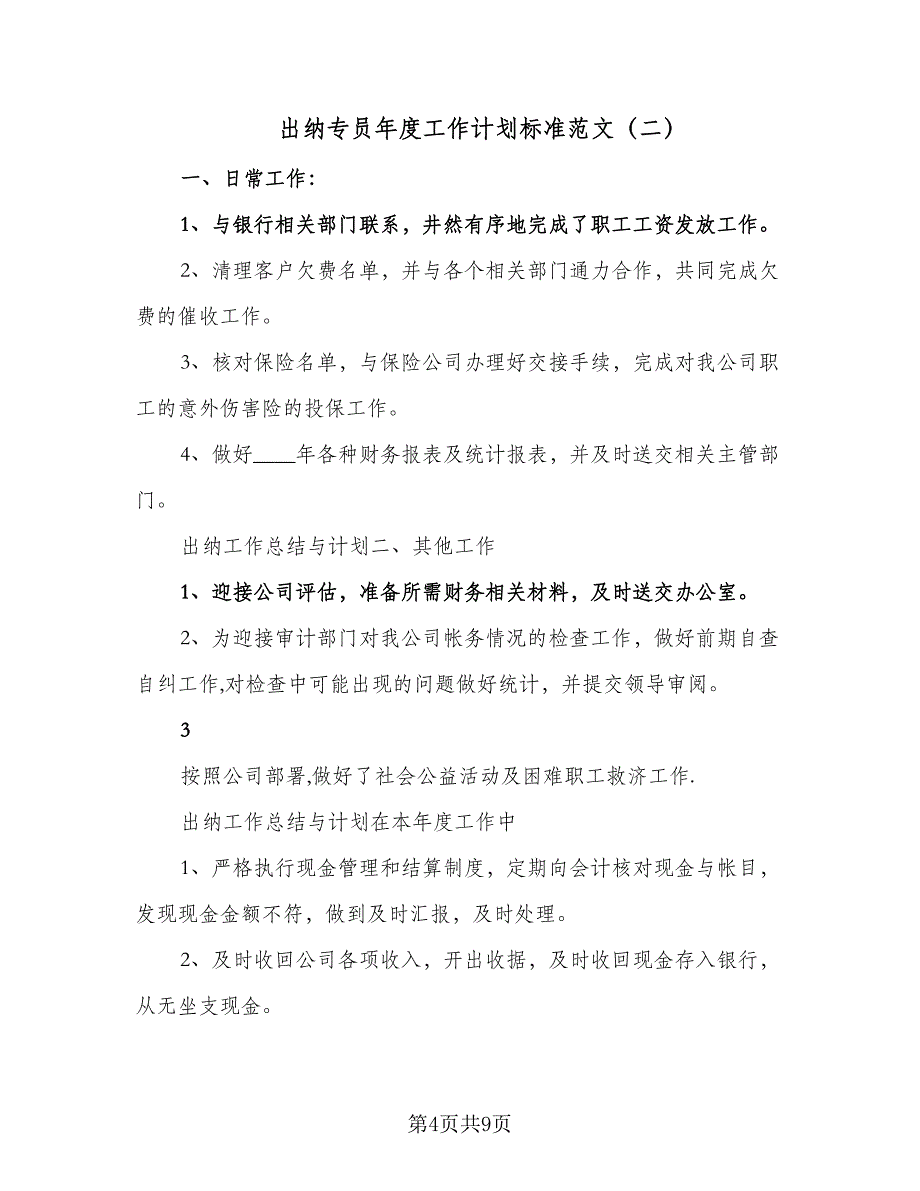 出纳专员年度工作计划标准范文（二）
一、日常工作：
1、与银行相关部门联系，井然有序地完成了职工工资发放工作。
2、清理客户欠费名单，并与各个相关部门通力合作，共同完成欠
费的催收工作。
3、核对保险名单，与保险公司办理好交接手续，完成对我公司职
工的意外伤害险的投保工作。
4、做好____年各种财务报表及统计报表，并及时送交相关主管部
门。
出纳工作总结与计划二、其他工作
1、迎接公司评估，准备所需财务相关材料，及时送交办公室。
2、为迎接审计部门对我公司帐务情况的检查工作，做好前期自查
自纠工作,对检查中可能出现的问题做好统计，并提交领导审阅。
3
按照公司部署,做好了社会公益活动及困难职工救济工作.
出纳工作总结与计划在本年度工作中
1、严格执行现金管理和结算制度，定期向会计核对现金与帐目，
发现现金金额不符，做到及时汇报，及时处理。
2、及时收回公司各项收入，开出收据，及时收回现金存入银行，
从无坐支现金。
第4页共9页